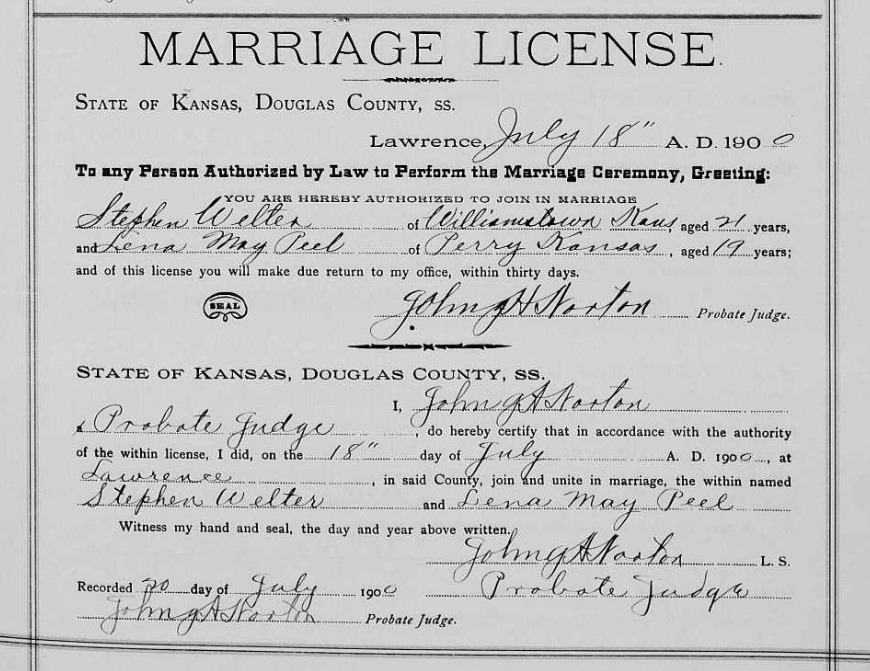 MARRIAGE LICENSE.
STATE OF KANSAS, DOUGLAS COUNTY, SS.
Lawrence, July 18" A. D. 1900
To any Person Authorized by Law to Perform the Marriage Ceremony, Greeting:
YOU ARE HEREBY AUTHORIZED TO JOIN IN MARRIAGE
Stephen Welter of Williamstown Kans, aged 21 years,
and Lena May Peel of Perry Kansas, aged 19 years;
and of this license you will make due return to my office, within thirty days.
SEAL John Q A Norton Probate Judge.
STATE OF KANSAS, DOUGLAS COUNTY, SS.
I, John Q A Norton
Probate Judge, do hereby certify that in accordance with the authority
of the within license, I did, on the 18" day of July A. D. 1900, at
Lawrence, in said County, join and unite in marriage, the within named
Stephen Welter and Lena May Peel
Witness my hand and seal, the day and year above written.
John Q A Norton L. S.
Recorded 20 day of July 1900 Probate Judge
John Q A Norton Probate Judge.